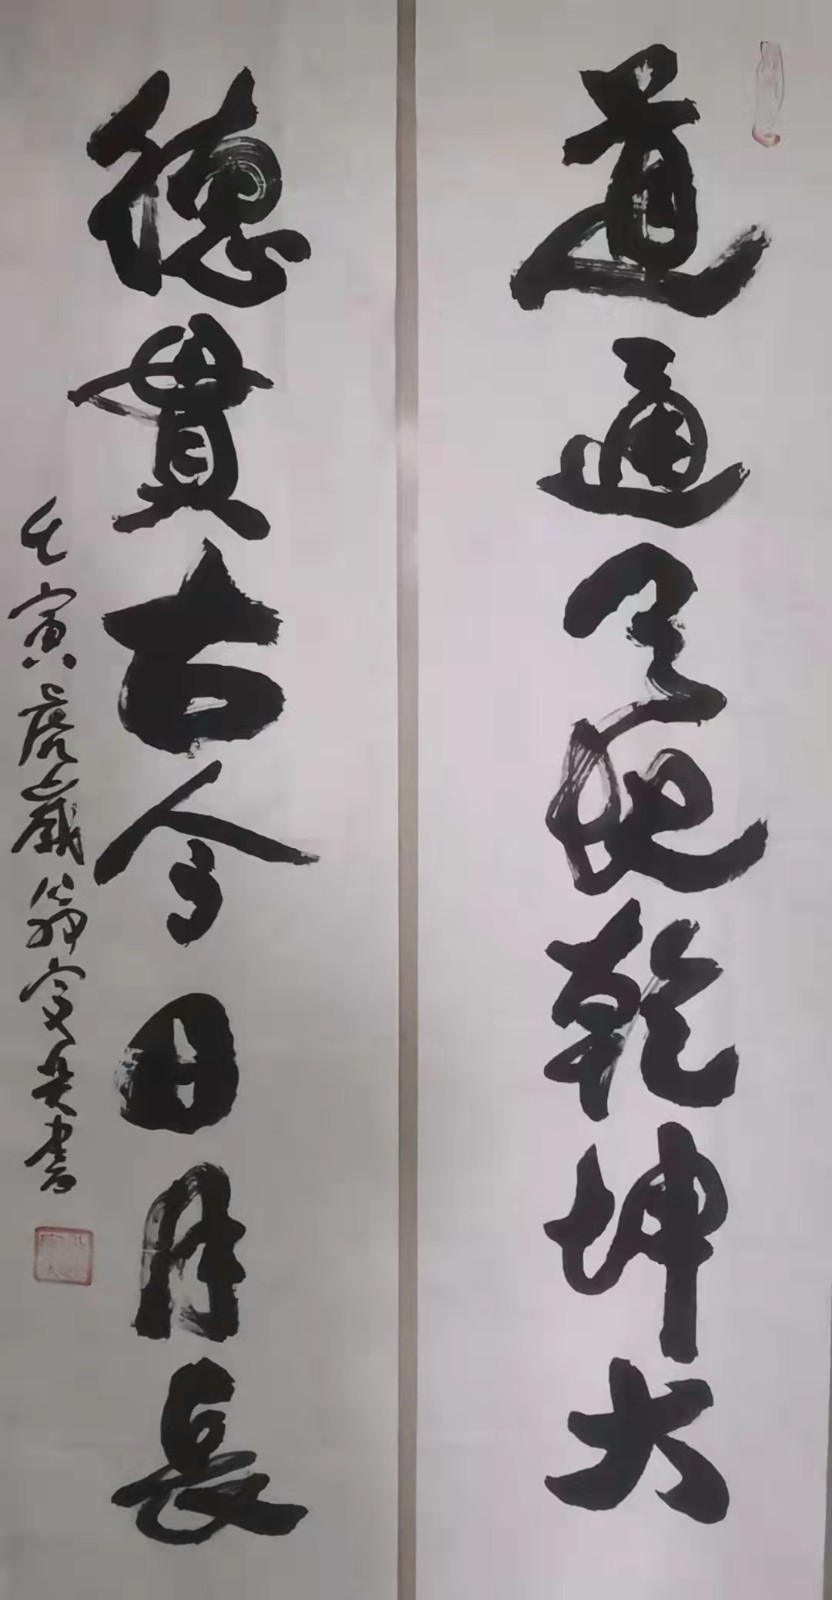 道通天地乾坤大
德貫古今日月長
壬寅虎歲
書